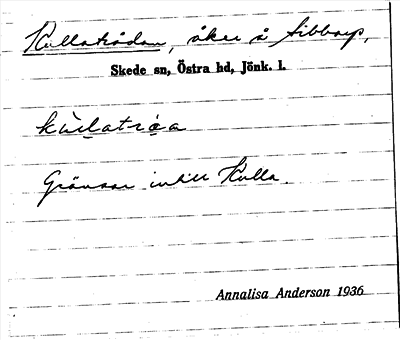 Kullaträdan, åker å Sibbarp,
Skede sn, Östra hd, Jönk. l.
kullatròa
Gränsar intill Kulla.
Annalisa Anderson 1936